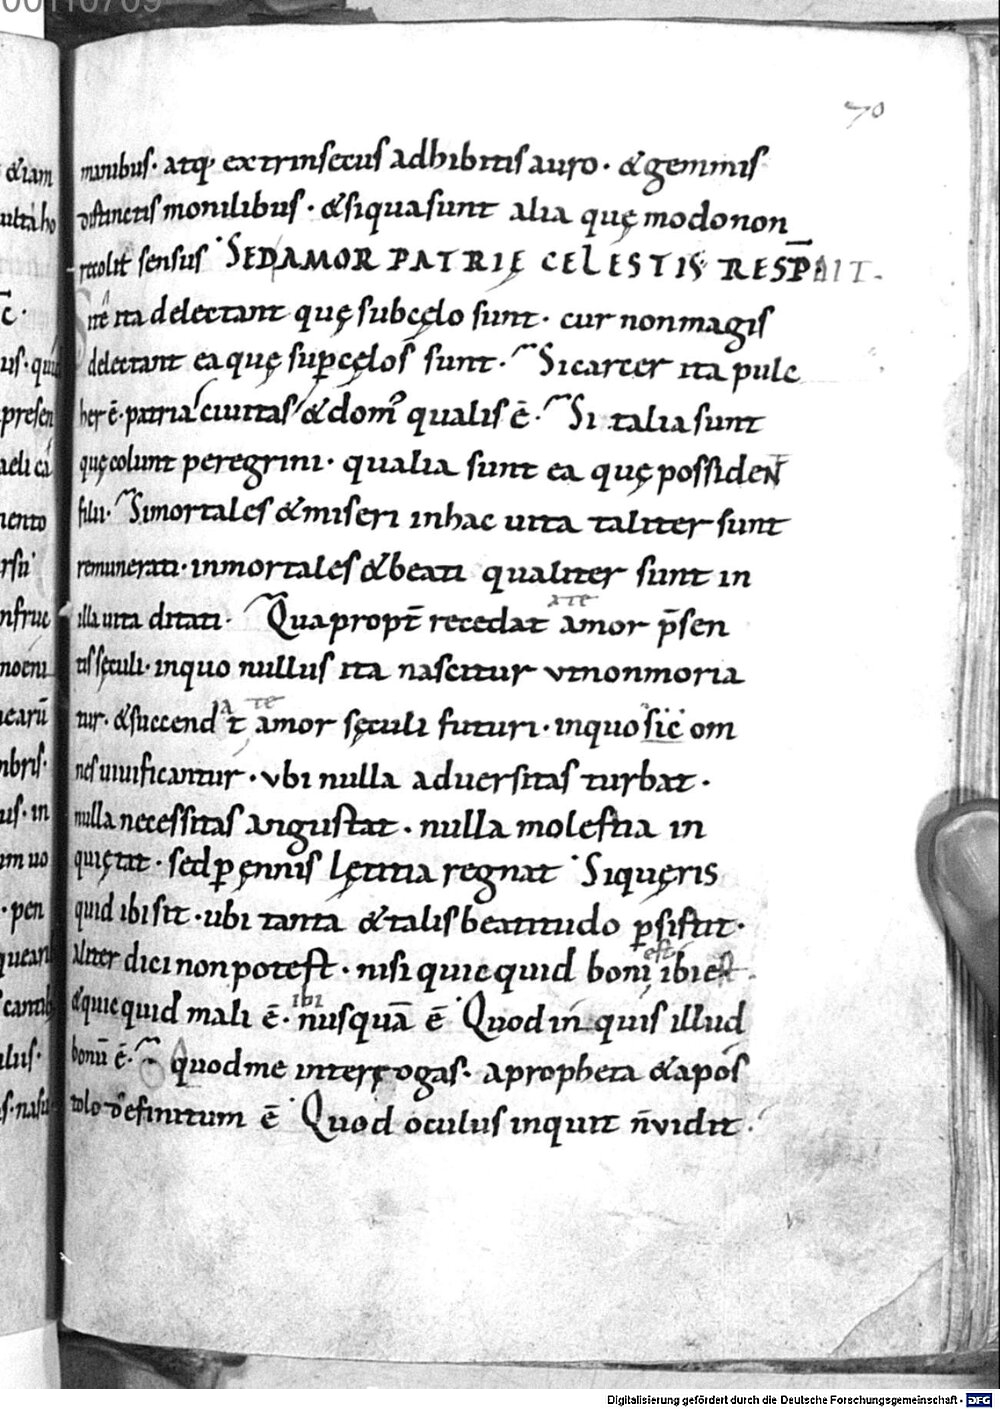 70
manibus· atq· extrinsecus adhibitis auro· &gemmis
distinctis monilibus· &siqua sunt alia quę modo non
recolit sensus· SED AMOR PATRIĘ CELESTIS RESP̄ AIT·
Si tē ita delectant quę sub cęlo sunt· cur non magis
delectant ea quę sup̱ cęlos sunt· Si carcer ita pulc
her ē· patria ciuitas &dom᾽ qualis ē· Si talia sunt
quę colunt peregrini· qualia sunt ea quę possideN
filii· Si mortales &miseri in hac uita taliter sunt
remunerati· inmortales &beati qualiter sunt in
illa uita ditati· Qua propt̄ recedat amor p̄sen
tis sęculi· in quo nullus ita nascitur vt non moria
tur· &succend at amor sęculi futuri· in quo sic om
nes uiuificantur· vbi nulla aduersitas turbat·
nulla necessitas angustat· nulla molestia in
quiętat· sed p̱ ęnnis lętitia regnat· Si quęris
quid ibi sit· ubi tanta &talis beatitudo p̱sistit·
Aliter dici non potest· nisi quicquid boni est ibi est·
&quicquid mali ē· ibi nusquā ē· Quod in quis illud
bonū ē· quod me interrogas· a propheta &apos
tolo definitum ē· Quod oculus inquit n̄ vidit·
Digitalisierung gefördert durch die Deutsche Forschungsgemeinschaft - DFG